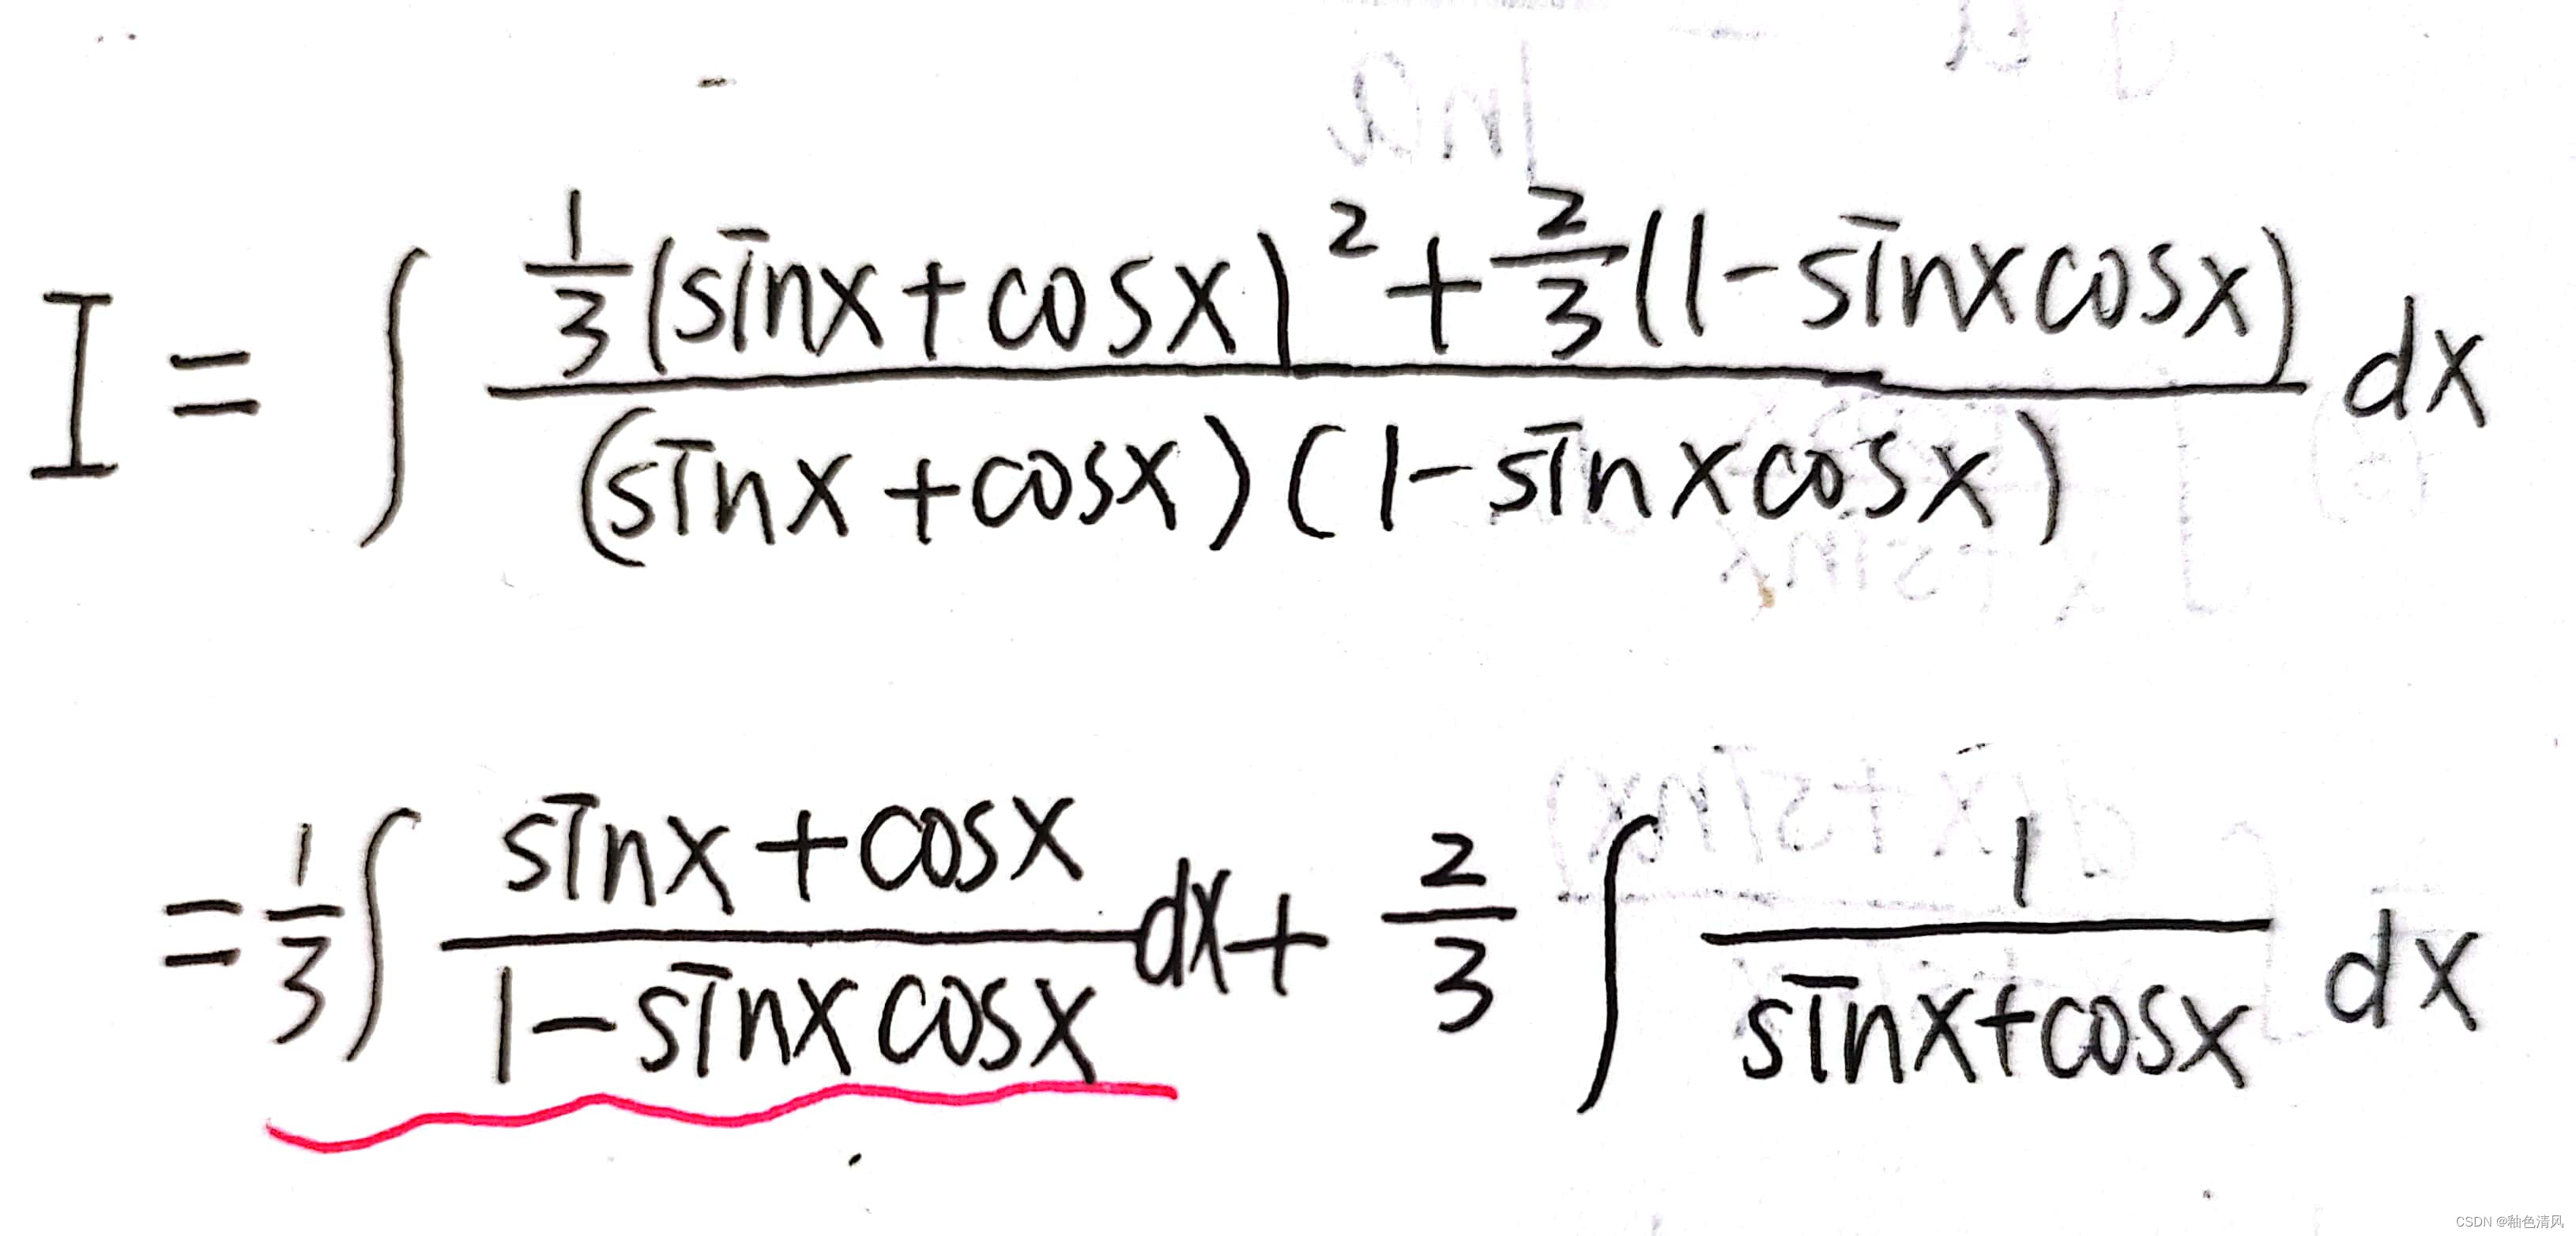 I = ∫ \frac{\frac{1}{3}(sinx+cosx)^2+\frac{2}{3}(1-sinxcosx)}{(sinx+cosx)(1-sinxcosx)} dx
= \frac{1}{3} ∫ \frac{sinx+cosx}{1-sinxcosx} dx + \frac{2}{3} ∫ \frac{1}{sinx+cosx} dx
CSDN @釉色清风